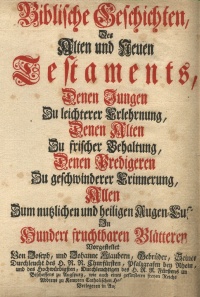 Biblische Geschichten,
Des
Alten und Neuen
Testaments,
Denen Jungen
Zu leichterer Erlehrnung,
Denen Alten
Zu frischer Behaltung,
Denen Predigeren
Zu geschwinderer Erinnerung,
Allen
Zum nutzlichen und heiligen Augen-Lust
In
Hundert fruchtbaren Blätteren
Vorgestellet
Von Joseph, und Johanne Klaubern, Gebrüder, Seiner
Durchleucht des H. R. R. Churfürsten, Pfaltzgrafen bey Rhein,
und des Hochwürdigsten, Durchleuchtigen des H. R. R. Fürsten
Bischoffen zu Augspurg,